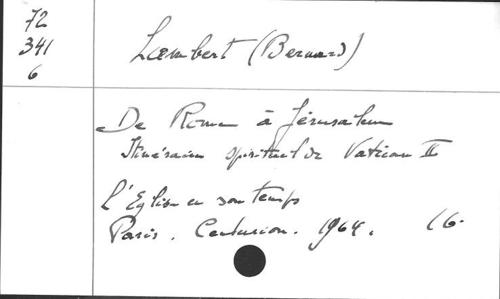 72
341
6
Lambert (Bernard)
De Rome à Jérusalem
Itinéraire spirituel de Vatican II
l'Eglise en son temps
Paris. Centurion. 1964. 16.